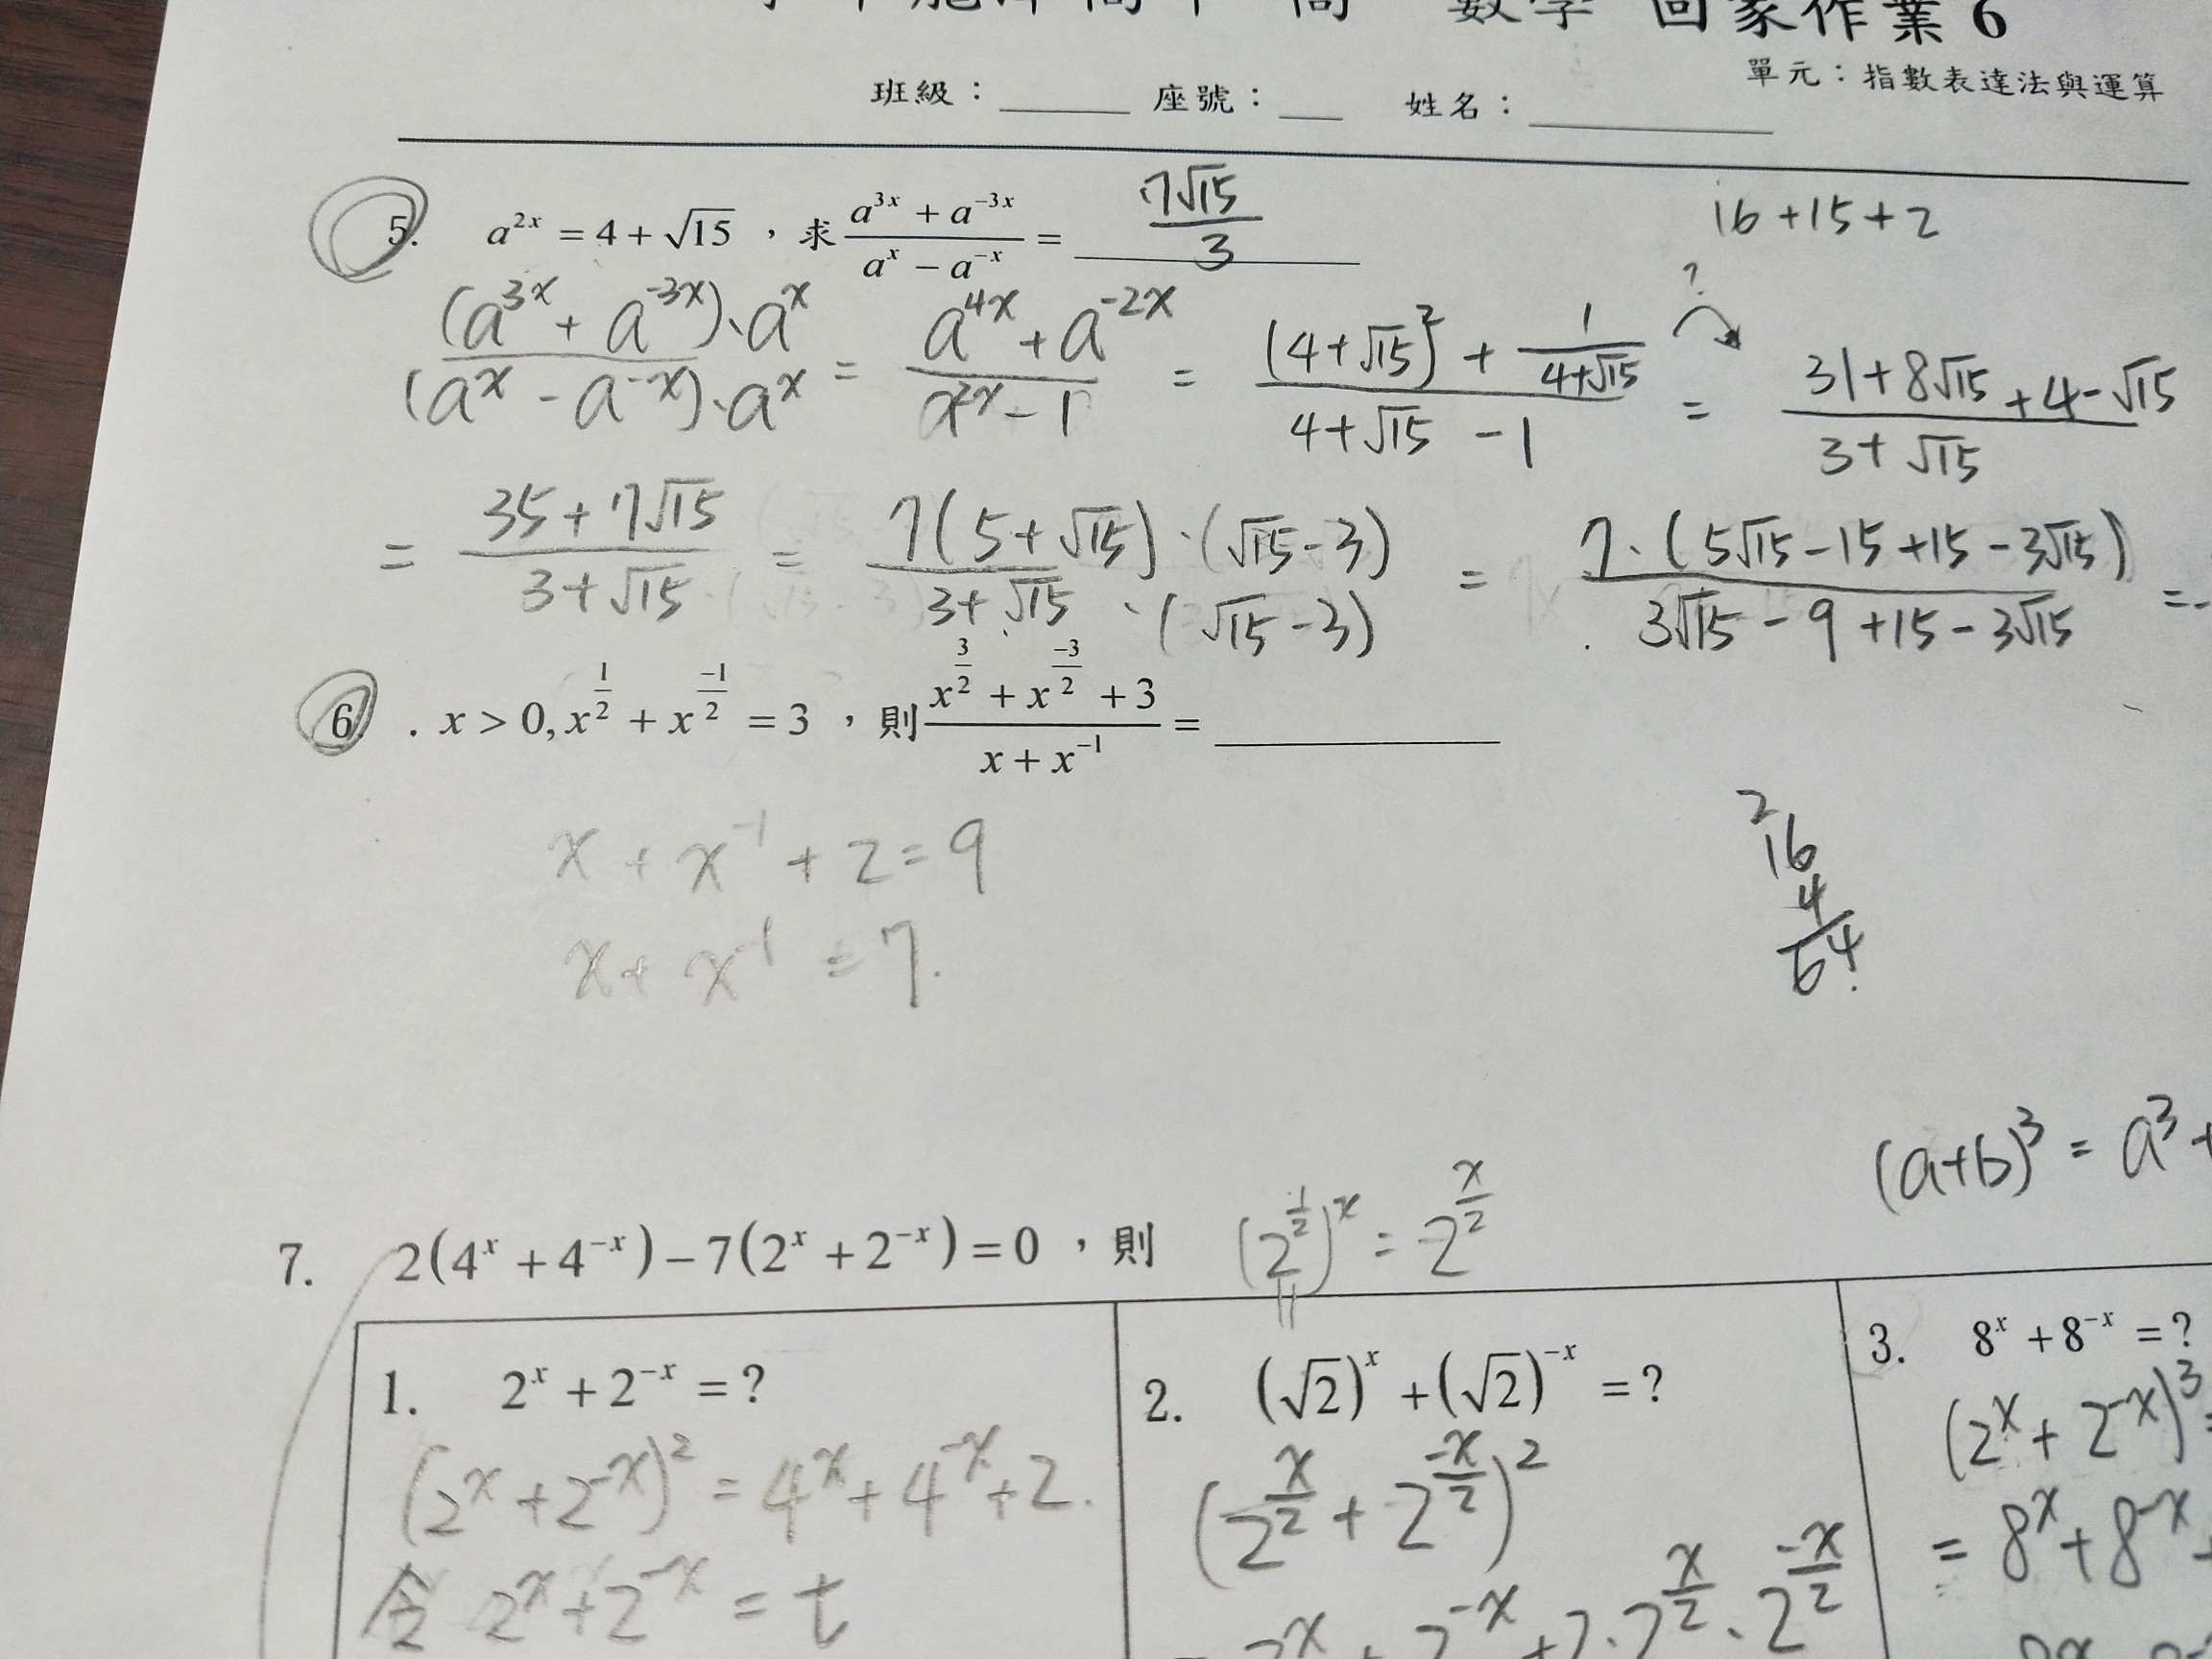 數學 回家作業 6
班級：______ 座號：___ 姓名：____________
單元：指數表達法與運算
5. a^{2x} = 4 + √15 ，求 \frac{a^{3x} + a^{-3x}}{a^x - a^{-x}} = \frac{7√15}{3}
16 + 15 + 2
\frac{(a^{3x} + a^{-3x})·a^x}{(a^x - a^{-x})·a^x} = \frac{a^{4x} + a^{-2x}}{a^{2x} - 1} = \frac{(4+√15)^2 + \frac{1}{4+√15}}{4+√15 - 1} ? = \frac{31+8√15 + 4-√15}{3+√15}
= \frac{35+7√15}{3+√15} = \frac{7(5+√15)·(√15-3)}{3+√15·(√15-3)} = \frac{7·(5√15-15+15-3√15)}{3√15-9+15-3√15} =
6. x > 0, x^{\frac{1}{2}} + x^{\frac{-1}{2}} = 3 ，則 \frac{x^{\frac{3}{2}} + x^{\frac{-3}{2}} + 3}{x + x^{-1}} = ____________
x + x^{-1} + 2 = 9
2
16
4
64
x + x^{-1} = 7.
(a+b)^3 = a^3 +
7. 2(4^x + 4^{-x}) - 7(2^x + 2^{-x}) = 0 ，則 (2^{\frac{1}{2}})^x = 2^{\frac{x}{2}}
1. 2^x + 2^{-x} = ?
(2^x + 2^{-x})^2 = 4^x + 4^{-x} + 2.
令 2^x + 2^{-x} = t
2. (√2)^x + (√2)^{-x} = ?
(2^{\frac{x}{2}} + 2^{\frac{-x}{2}})^2
= 2^x + 2^{-x} + 2·2^{\frac{x}{2}}·2^{\frac{-x}{2}}
3. 8^x + 8^{-x} = ?
(2^x + 2^{-x})^3
= 8^x + 8^{-x} +